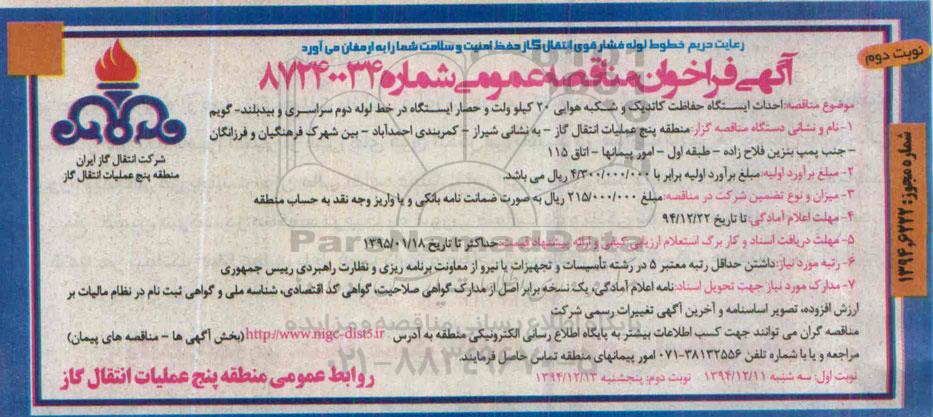 رعایت حریم خطوط لوله فشار قوی انتقال گاز حفظ امنیت و سلامت شما را به ارمغان می آورد
نوبت دوم
آگهی فراخوان مناقصه عمومی شماره ۸۷۲۴۰۰۳۴
موضوع مناقصه: احداث ایستگاه حفاظت کاتدیک و شبکه هوایی ۲۰ کیلو ولت و حصار ایستگاه در خط لوله دوم سراسری و بیدبلند- گویم
۱- نام و نشانی دستگاه مناقصه گزار: منطقه پنج عملیات انتقال گاز - به نشانی شیراز - کمربندی احمدآباد - بین شهرک فرهنگیان و فرزانگان
- جنب پمپ بنزین فلاح زاده - طبقه اول - امور پیمانها - اتاق ۱۱۵
۲- مبلغ برآورد اولیه: مبلغ برآورد اولیه برابر با ۴/۳۰۰/۰۰۰/۰۰۰ ریال می باشد.
۳- میزان و نوع تضمین شرکت در مناقصه: مبلغ ۲۱۵/۰۰۰/۰۰۰ ریال به صورت ضمانت نامه بانکی و یا واریز وجه نقد به حساب منطقه
۴- مهلت اعلام آمادگی: تا تاریخ ۹۴/۱۲/۲۲
۵- مهلت دریافت اسناد و کار برگ استعلام ارزیابی کیفی و ارائه پیشنهاد قیمت: حداکثر تا تاریخ ۱۳۹۵/۰۱/۱۸
۶- رتبه مورد نیاز: داشتن حداقل رتبه معتبر ۵ در رشته تأسیسات و تجهیزات یا نیرو از معاونت برنامه ریزی و نظارت راهبردی رییس جمهوری
۷- مدارک مورد نیاز جهت تحویل اسناد: نامه اعلام آمادگی، یک نسخه برابر اصل از مدارک گواهی صلاحیت، گواهی کد اقتصادی، شناسه ملی و گواهی ثبت نام در نظام مالیات بر
ارزش افزوده، تصویر اساسنامه و آخرین آگهی تغییرات رسمی شرکت
مناقصه گران می توانند جهت کسب اطلاعات بیشتر به پایگاه اطلاع رسانی الکترونیکی منطقه به آدرس http://www.nigc-dist5.ir (بخش آگهی ها - مناقصه های پیمان)
مراجعه و یا با شماره تلفن ۳۸۱۳۲۵۵۶-۰۷۱ امور پیمانهای منطقه تماس حاصل فرمایند.
نوبت اول: سه شنبه ۱۳۹۴/۱۲/۱۱ نوبت دوم: پنجشنبه ۱۳۹۴/۱۲/۱۳
روابط عمومی منطقه پنج عملیات انتقال گاز
شرکت انتقال گاز ایران
منطقه پنج عملیات انتقال گاز
شماره مجوز: ۶۲۲۲، ۱۳۹۴
ParsNamadData